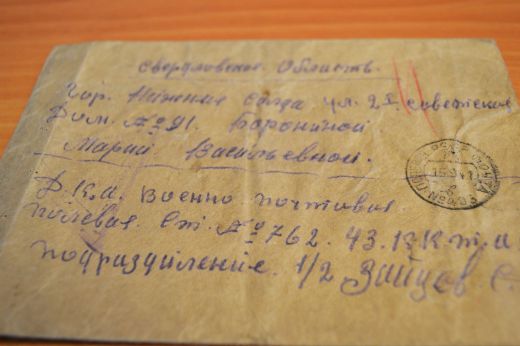 Свердловская Область.
гор. Нижняя Салда ул. 2я советская
Дом. № 91. Борониной
Марии Васильевной.
Д.К.А. Военно почтовая
полевая. Ст. № 762. 43.
подразделение. 1/2 Зайцов С.